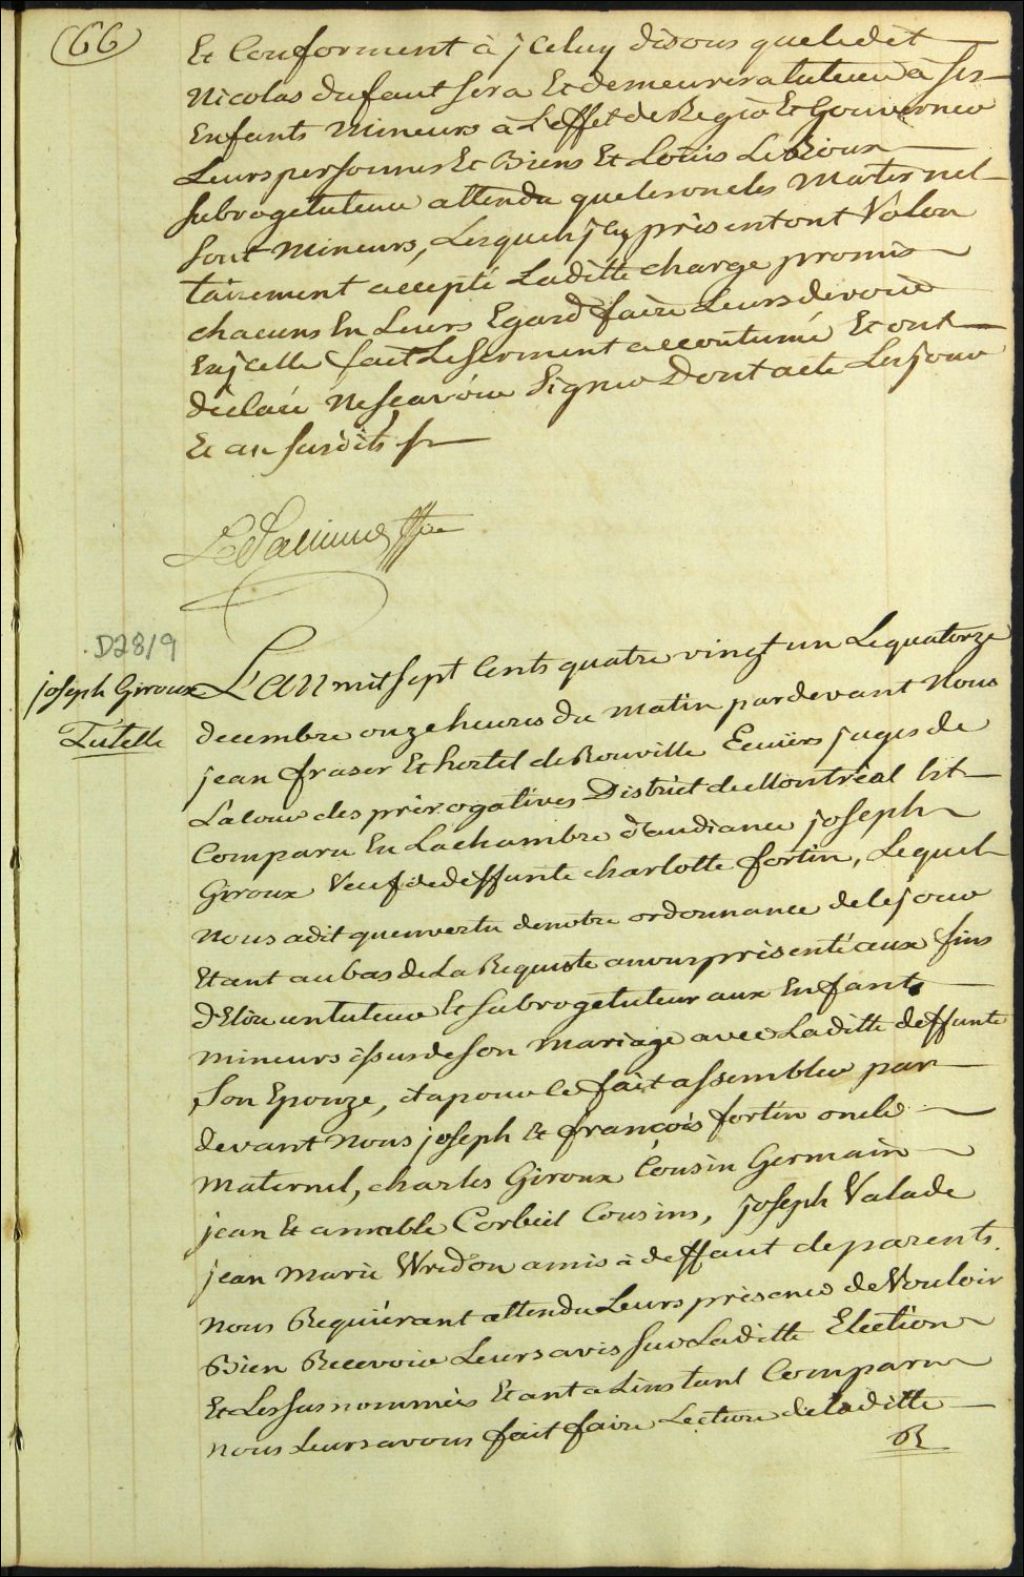 66
Et Conforment à jCeluy disons queledit
Nicolas dufaut sera Et demeurera tuteur à ses
Enfants Mineurs à L'effet de Regir Et Gouverner
Leurs personnes Et Biens Et Loüis LeRoux
subrogétuteur attendu que les oncles Maternel
sont Mineurs, Lesquels jCy présent ont Volon
tairement accepté Laditte charge promis
chacuns En Leurs Egard faire Leurs devoir
En jCelle fait Le serment accoutumé Et ont
déclaré Ne sçavoir Signer Dont acte Les jour
Et an susdits
D2819
joseph Giroux
Tutelle
L'an mil sept Cents quatre vingt un Le quatorze
decembre onze heures du Matin pardevant Nous
jean fraser Et hertel de Rouville Ecuiers juges de
La Cour des prérogatives District de Montréal Est
Comparu En La chambre d'audiance joseph
Giroux Veuf de deffunte charlotte fortin, Lequel
Nous a dit qu'en vertu de notre ordonnance de Ce jour
Etant au bas de La Requiste a nous présenté aux fins
d'Elire un tuteur Et subrogétuteur aux Enfants
Mineurs issus de son Mariage avec Laditte deffunte
Son Epouze, il a pour Ce fait assembler par
devant Nous joseph Et françois fortin oncle
Maternel, charles Giroux Cousin Germain
jean Et amable Corbeil Cousins, joseph Valade
jean Marie Vredon amis à deffaut de parents.
Nous Requièrant attendu Leurs présence de Vouloir
Bien Recevoir Leurs avis sur Laditte Election
Et Les susnommés Etant a Linstant Comparu
Nous Leurs avons fait faire Lecture de Laditte
R